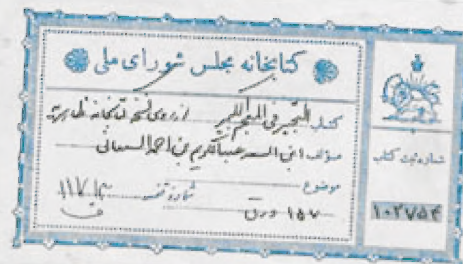 کتابخانه مجلس شورای ملی
کتاب التحبیر فی المعجم الکبیر از روی نسخه کتابخانه ظاهریه
مؤلف ابن السعد عبدالکریم بن احمد السمعانی
موضوع
شماره قفسه
۱۵۷ ورق
شماره ثبت کتاب
۱۰۲۷۵۴